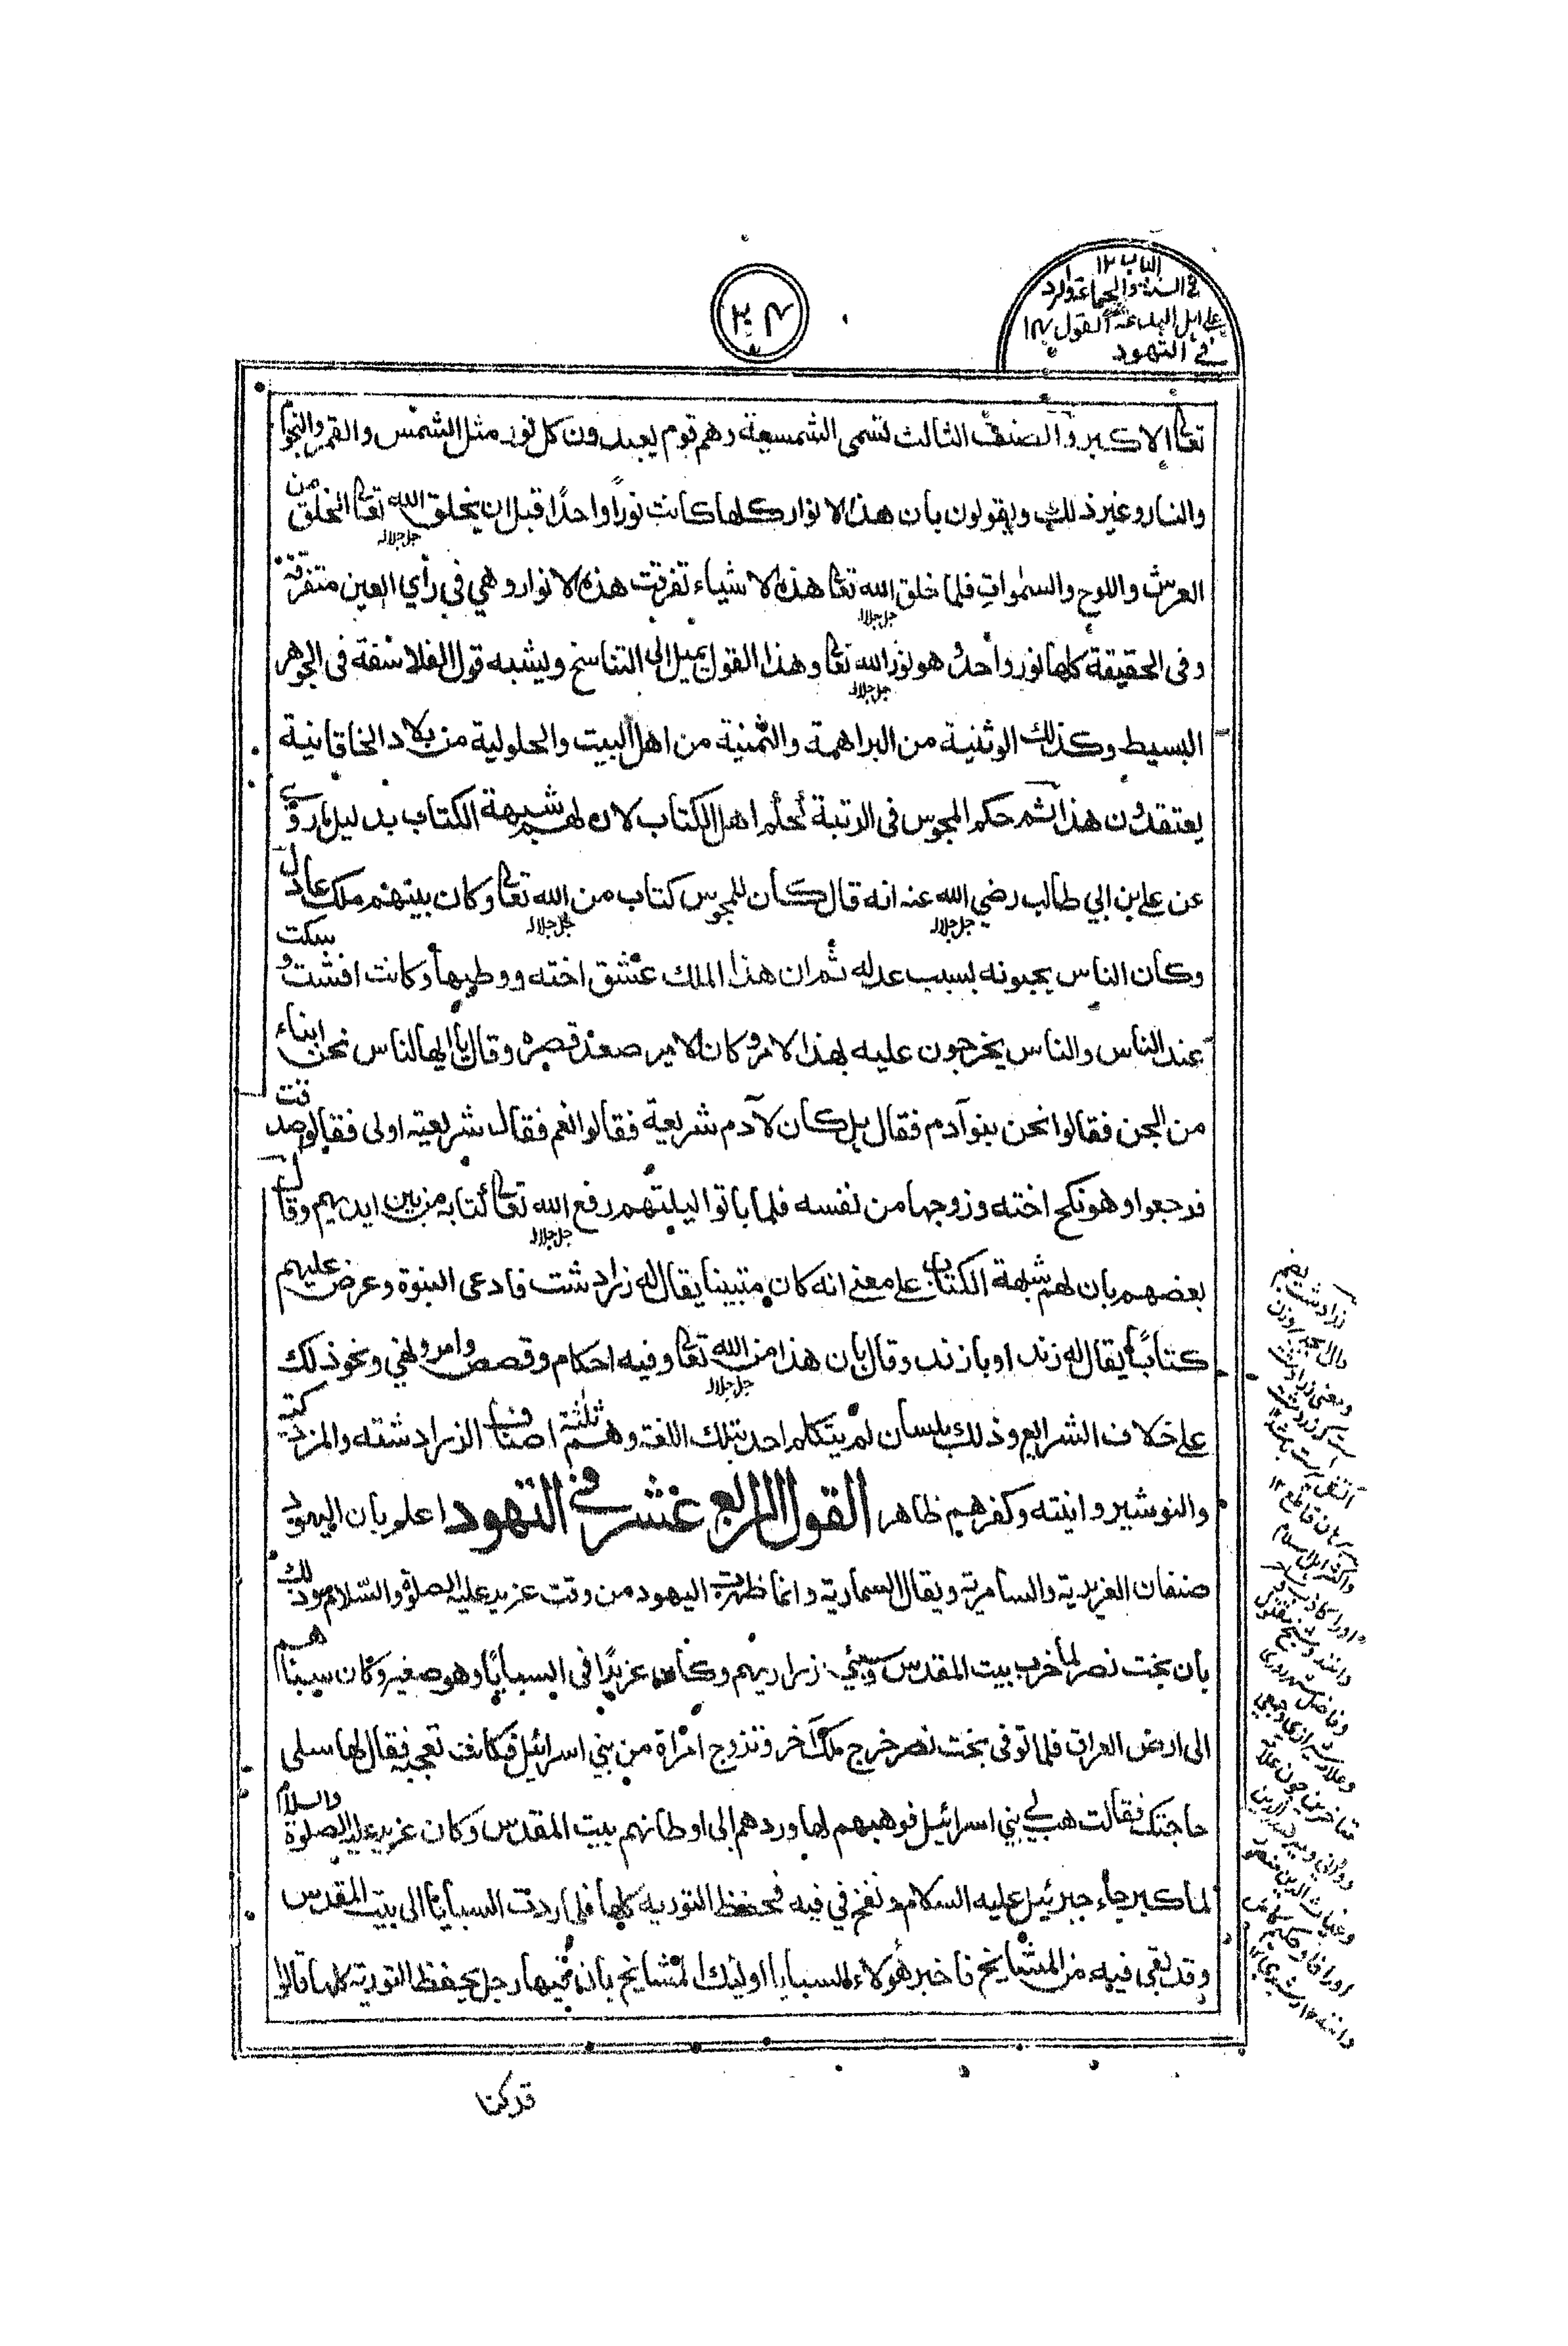 الباب ١٢
في السنة والجماعة والرد
على اهل البدعة القول ١٤
في التهود
٢٠٤
تعالى الاكبر والصنف الثالث تسمى الشمسية وهم قوم يعبدون كل نور مثل الشمس والقمر والنجوا
والنار وغير ذلك ويقولون بان هذا الانوار كلها كانت نورًا واحدًا قبل ان يخلق الله تعالى الخلق من
جل جلاله
العرش واللوح والسموات فلما خلق الله تعالى هذه الاشياء تفرقت هذه الانوار وهي في رأي العين متفرقة
جل جلاله
وفى الحقيقة كلها نور واحد هو نور الله تعالى وهذا القول يميل الى التناسخ ويشبه قول الفلاسفة فى الجوهر
جل جلاله
البسيط وكذلك الوثنية من البراهمة والثمنية من اهل البيت والحلولية من بلاد الخاقانية
يعتقدون هذا ثم حكم المجوس فى الرتبة كحكم اهل الكتاب لان لهم شبهة الكتاب بدليل ما روي
عن علي بن ابي طالب رضي الله عنه انه قال كان للمجوس كتاب من الله تعالى وكان بينهم ملك عادل
جل جلاله جل جلاله
وكان الناس يحبونه بسبب عدله ثم ان هذا الملك عشق اخته ووطيها وكانت افشت و سكت
عند الناس والناس يخرجون عليه بهذا الامر وكان الامير صعد قصره وقال يا ايها الناس نحن ابناء
من الجن فقالوا نحن بنو آدم فقال بل كان لآدم شريعة فقالوا نعم فقال شريعته اولى فقالوا صدقت
فرجعوا وهو نكح اخته وزوجها من نفسه فلما باتوا ليلتهم رفع الله تعالى كتابه من بين ايديهم وقال
جل جلاله
بعضهم بان لهم شبهة الكتاب على معنى انه كان متبينا يقال له زرادشت فادعى النبوة وعرض عليهم
كتابًا يقال له زند او بازند وقال بان هذا من الله تعالى وفيه احكام وقصص وامر ونهي ونحو ذلك
جل جلاله
على خلاف الشرايع وذلك بلسان لم يتكلم احد بتلك اللغة وهم ثلثة اصناف الزرادشته والمزدكية
والنوشيروانيته وكفرهم ظاهر القول الرابع عشر في التهود اعلم بان اليهود
صنفان العزيدية والسامرية ويقال السمارية وانما ظهرت اليهود من وقت عزير عليه الصلوة والسلام وذلك
بان بخت نصر لما خرب بيت المقدس وسبي ذراريهم وكان عزيرًا فى السبايا وهو صغير وكان سبيناهم
الى ارض العراق فلما توفى بخت نصر خرج ملك آخر وتزوج امرأة من بني اسرائيل فكانت تعجبه فقال لها سلى
حاجتك فقالت هب لي بني اسرائيل فوهبهم لها وردهم الى اوطانهم بيت المقدس وكان عزير عليه الصلوة والسلام
لما كبر جاء جبرئيل عليه السلام ونفخ في فيه فحفظ التورية كلها فلما ردت السبايا الى بيت المقدس
وقد بقى فيه من المشايخ فاخبر هؤلاء السبايا اولئك المشايخ بان فيها رجل يحفظ التورية كلها قالوا
قد كنا